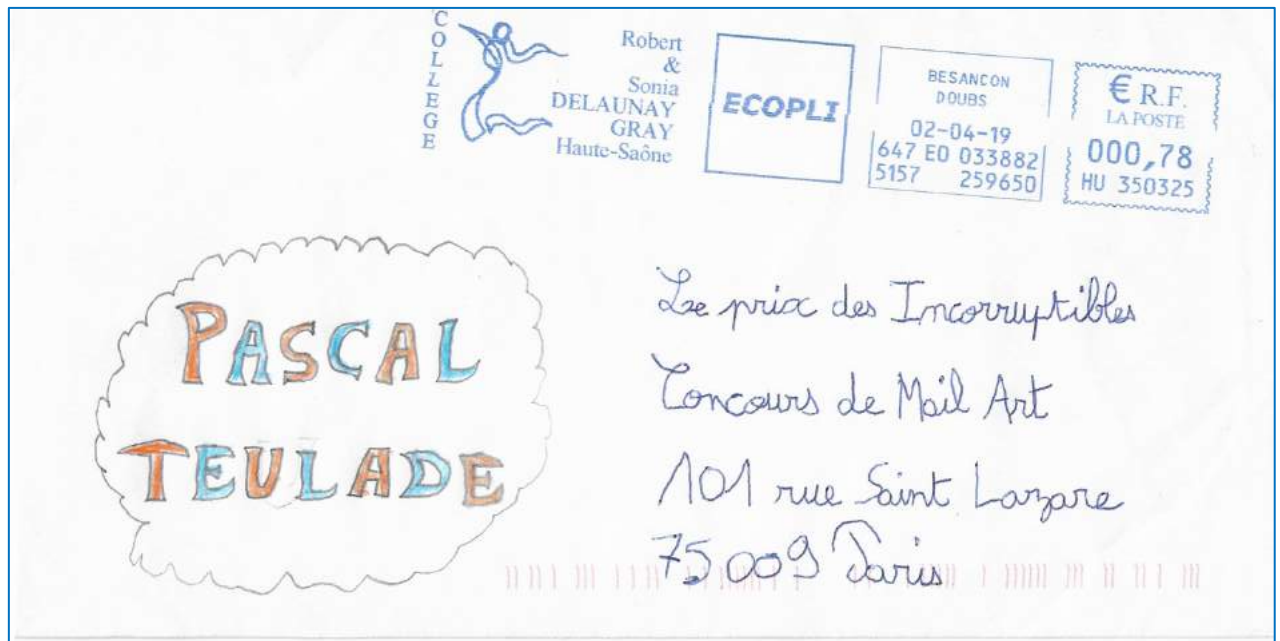 COLLEGE
Robert
&
Sonia
DELAUNAY
GRAY
Haute-Saône
ECOPLI
BESANCON
DOUBS
02-04-19
647 EO 033882
5157 259650
€ R.F.
LA POSTE
000,78
HU 350325
PASCAL
TEULADE
Le prix des Incorruptibles
Concours de Mail Art
101 rue Saint Lazare
75009 Paris